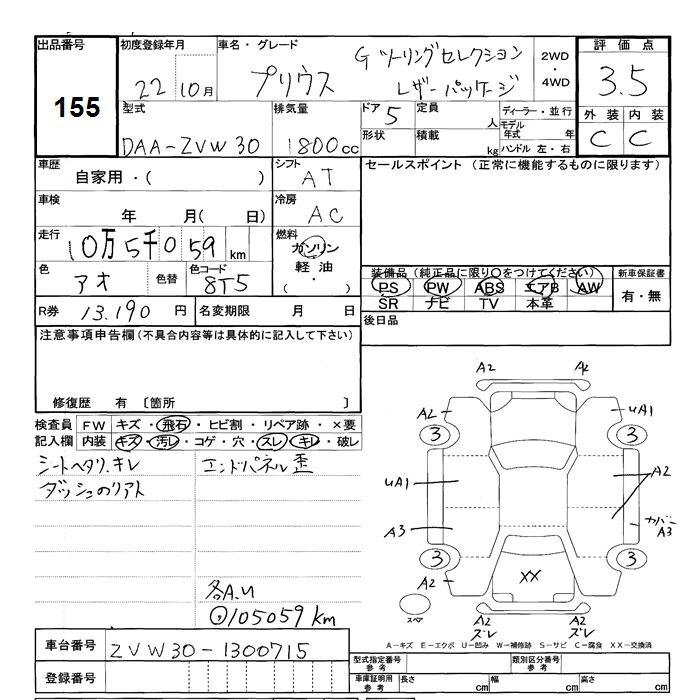 出品番号
155
初度登録年月
22 10月
車名・グレード
プリウス
G ツーリングセレクション
レザーパッケージ
2WD
・
4WD
評価点
3.5
外装 内装
C C
型式
DAA-ZVW30
排気量
1800cc
ドア 5
定員 人
ディーラー・並行
形状
積載 kg
モデル年式 年
ハンドル 左・右
車歴
自家用・( )
シフト
AT
セールスポイント (正常に機能するものに限ります)
車検
年 月( 日)
冷房
AC
走行
10万5千059km
燃料
ガソリン
軽油
( ・ )
色
アオ
色替
色コード
8T5
装備品(純正品に限り○をつけてください)
PS PW ABS エアB AW
SR ナビ TV 本革
新車保証書
有・無
R券 13.190円
名変期限 月 日
後日品
注意事項申告欄(不具合内容等は具体的に記入して下さい)
修復歴 有 〔箇所 〕
検査員記入欄
FW キズ・飛石・ヒビ割・リペア跡・×要
内装 キズ・汚レ・コゲ・穴・スレ・キレ・破レ
シートヘタリ、キレ
ダッシュのリアト
エンドパネル歪
各A.U
105059km
A2 A2
A2 uA1
3 3
uA1 A2
A3 カバー
A3
3 3
A2 XX
スペア
A2 A2
ズレ ズレ
A-キズ E-エクボ U-凹み W-補修跡 S-サビ C-腐食 XX-交換済
車台番号 ZVW30-1300715
登録番号
型式指定番号
参考
類別区分番号
参考
車庫証明用
参考
長さ cm 幅 cm 高さ cm